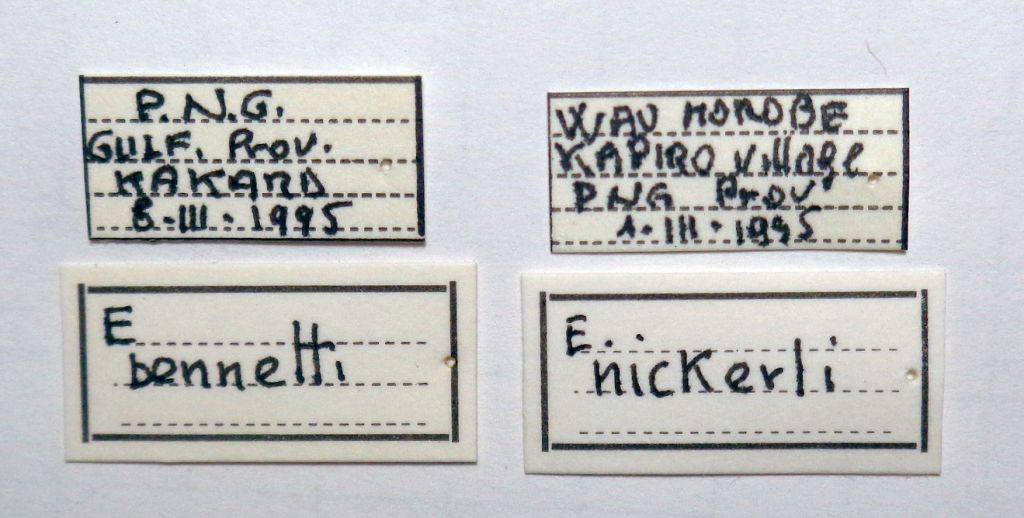 P.N.G.
GULF. Prov.
KAKARO
8.III.1995
E
bennetti
WAU MOROBE
KAPIRO Village
PNG Prov
1.III.1995
E.
nickerli